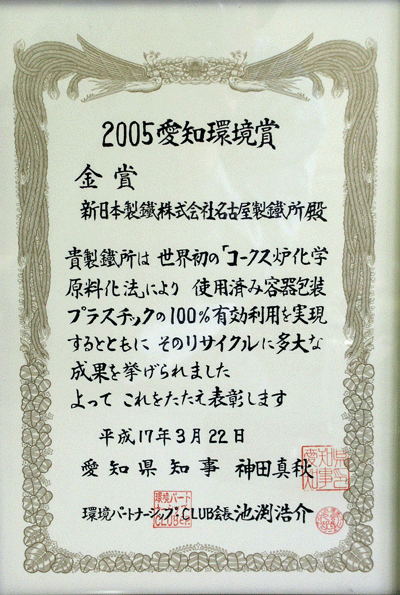 2005愛知環境賞
金賞
新日本製鐵株式会社名古屋製鐵所殿
貴製鐵所は 世界初の「コークス炉化学
原料化法」により 使用済み容器包装
プラスチックの100%有効利用を実現
するとともに そのリサイクルに多大な
成果を挙げられました
よって これをたたえ表彰します
平成17年3月22日
愛知県知事 神田真秋
環境パートナーシップ・CLUB会長 池渕浩介